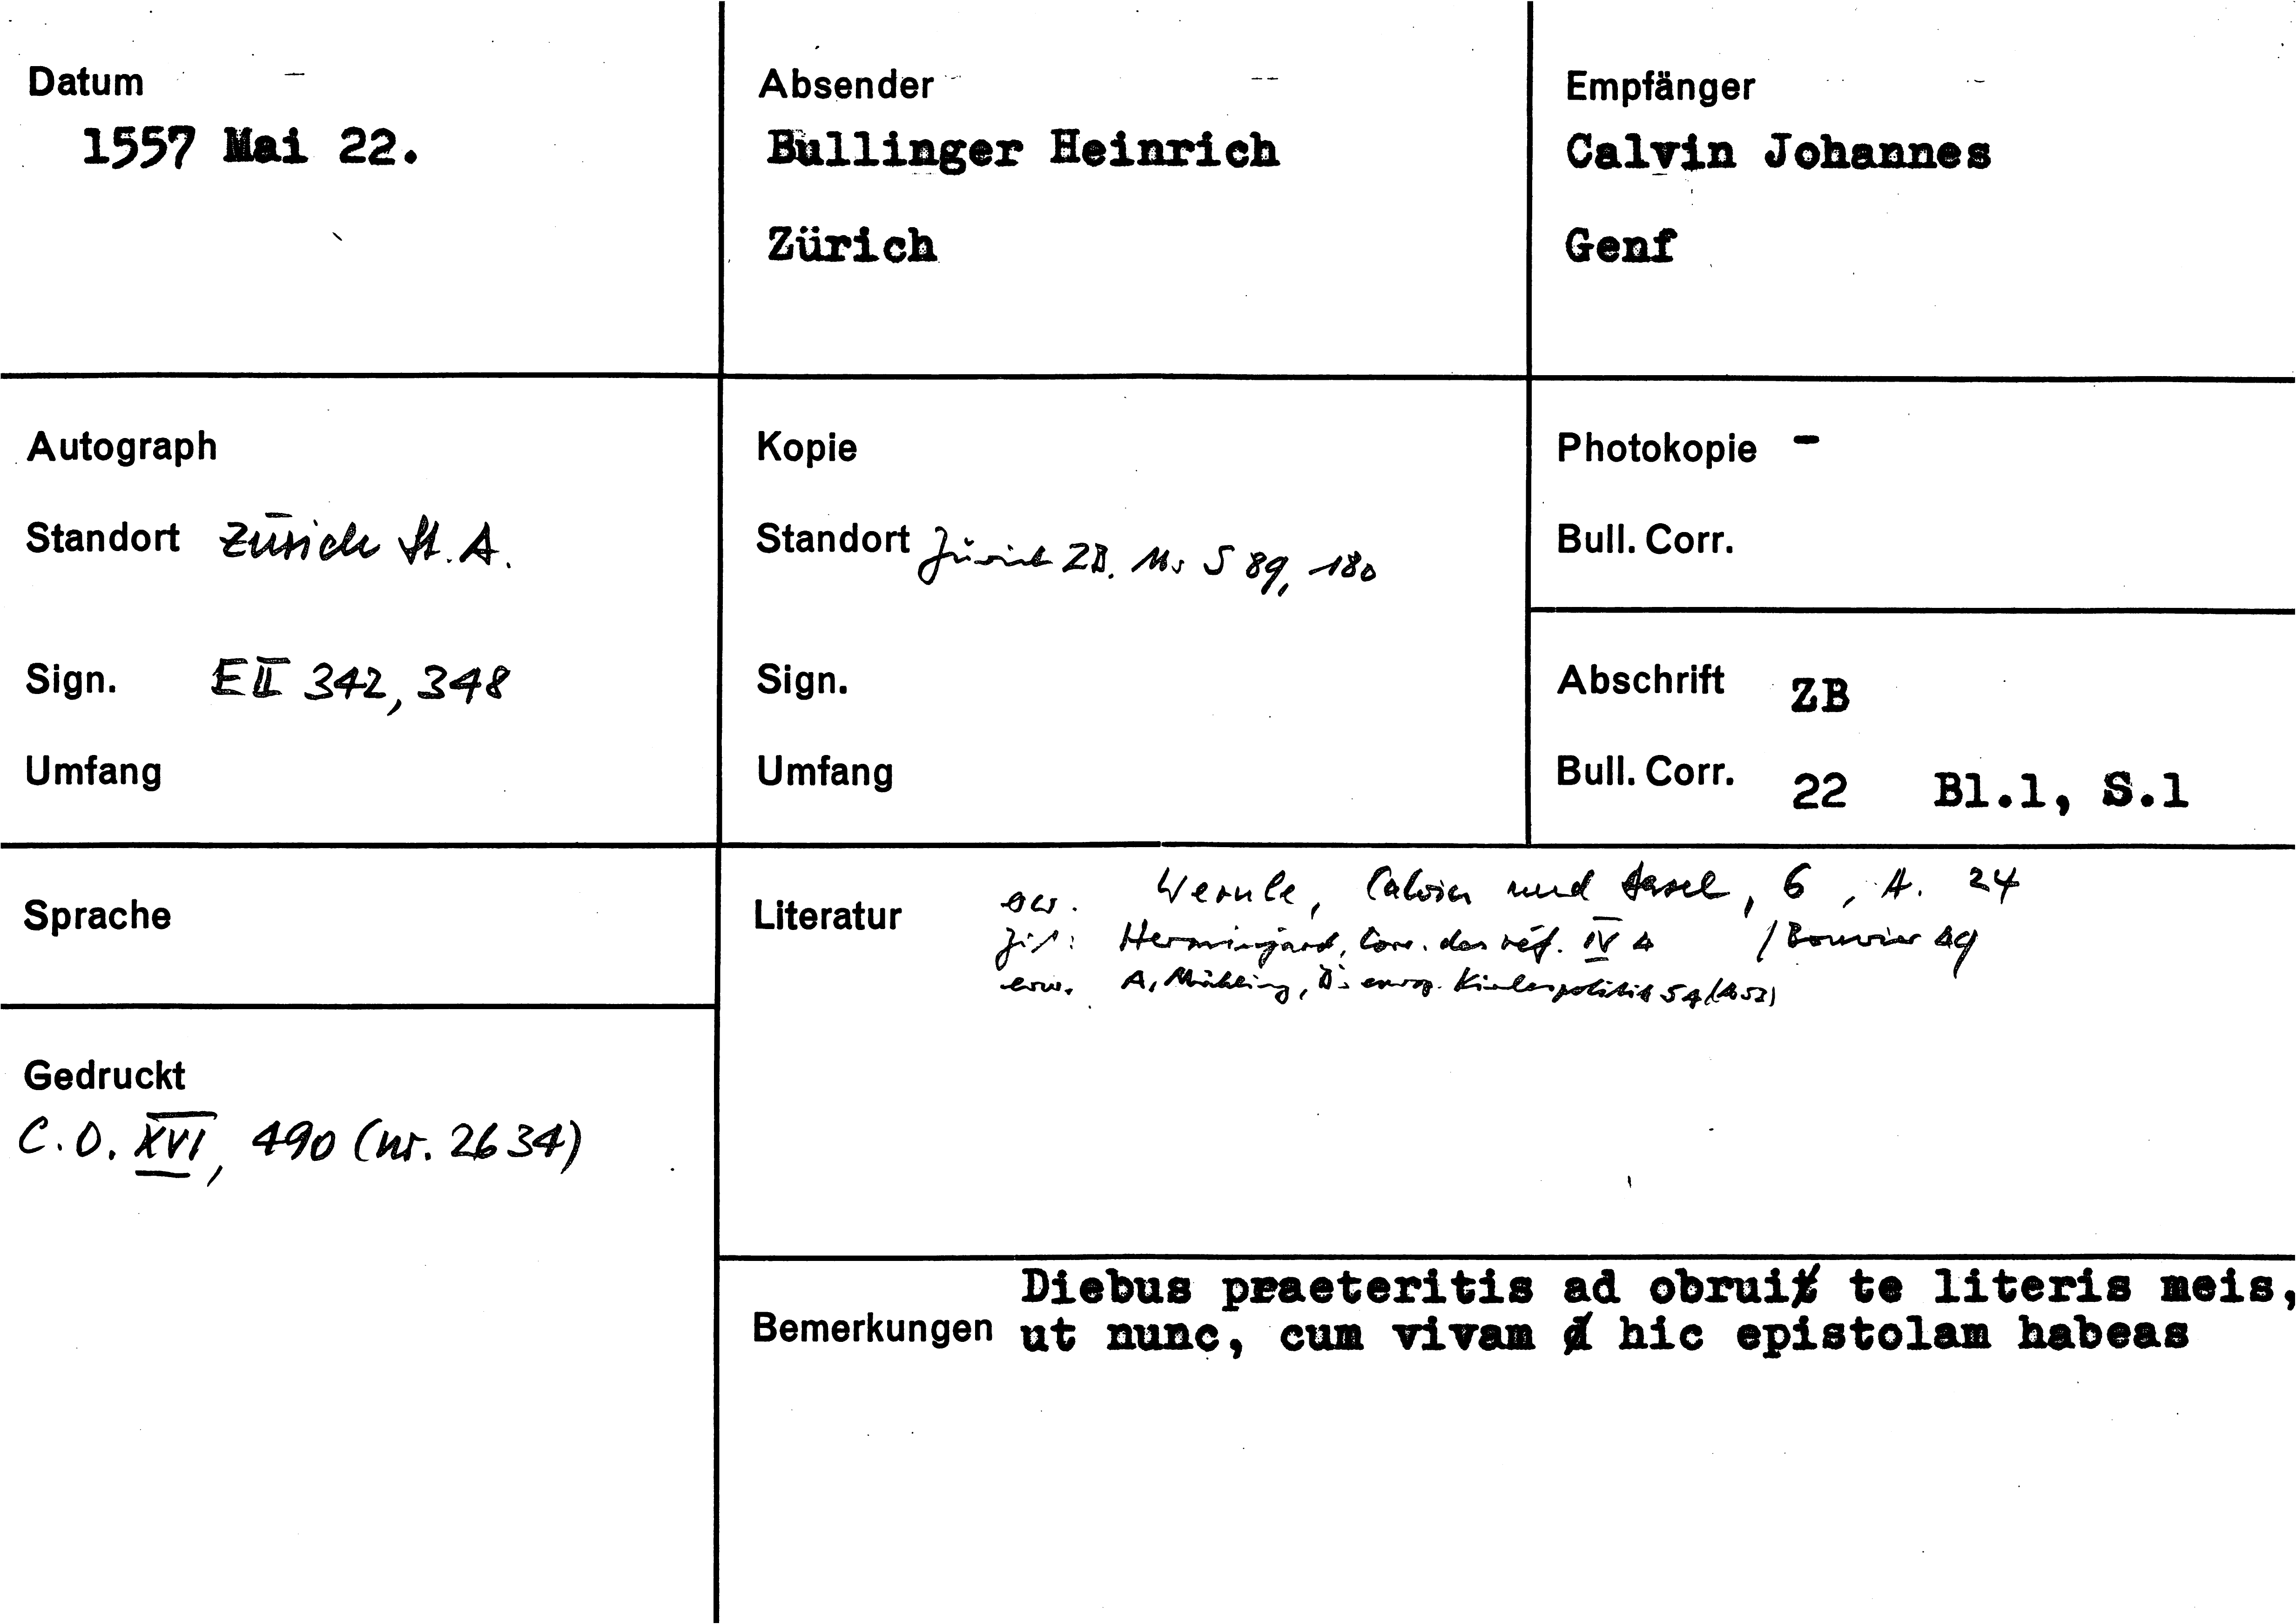 Datum
1557 Mai 22.
Absender
Bullinger Heinrich
Zürich
Empfänger
Calvin Johannes
Genf
Autograph
Standort Zürich St. A.
Sign. E II 342, 348
Umfang
Kopie
Standort Zürich ZB. Ms S 89, 180
Sign.
Umfang
Photokopie -
Bull. Corr.
Abschrift ZB
Bull. Corr. 22 Bl.1, S.1
Sprache
Literatur
Wernle, Calvin und Basel, 6, A. 24
zit: Herminjard, Corr. des réf. IV 4 / Bouvier 49
erw. A. Mühling, B's europ. Kirchenpolitik 54 (A 52)
Gedruckt
C.O. XVI, 490 (nr. 2634)
Bemerkungen
Diebus praeteritis ad obrui te literis meis,
ut nunc, cum vivam hic epistolam habeas